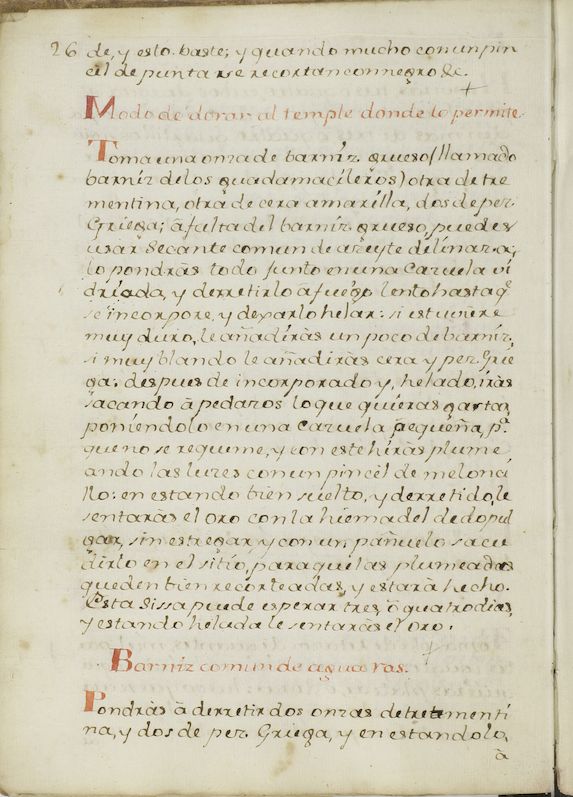 26 de, y esto baste; y quando mucho con un pin
cèl de punta se recortan con negro &c.
Modo de dorar al temple donde lo permite.
Toma una onza de barníz grueso (llamado
barníz de los guadamacileros) otra de tre
mentina, otra de cera amarílla, dos de pez
Griega; à falta del barníz grueso, puedes
usar secante comun de azeyte de línaza,
lo pondràs todo junto en una cazuela vi
dríada, y derretirlo à fuego lento hasta q̃
se incorpore, y dexarlo helar: si estuviere
muy duro, le añadiràs un poco de barníz,
si muy blando le añadiràs cera y pez Grie
ga: despues de incorporado y, helado, iràs
sacando à pedazos lo que quieras gastar,
poníendolo en una cazuela pequeña, pª.
que no se requeme, y con este hiràs plume
ando las luzes con un pincèl de meloncí
llo: en estando bien suelto, y derretido, le
sentaràs el oro con la hiema del dedo pul
gar, sin estregar, y con un pañuelo sacu
dirlo en el sitío, para que las plumeadas
queden bien recorteadas, y estarà hecho.
Esta sissa puede esperar tres, ò quatro dias,
y estando helada le sentaràs el oro.
Barníz comun de agua ras.
Pondràs à derretir dos onzas de trementí
na, y dos de pez Griega, y en estandolo,
à